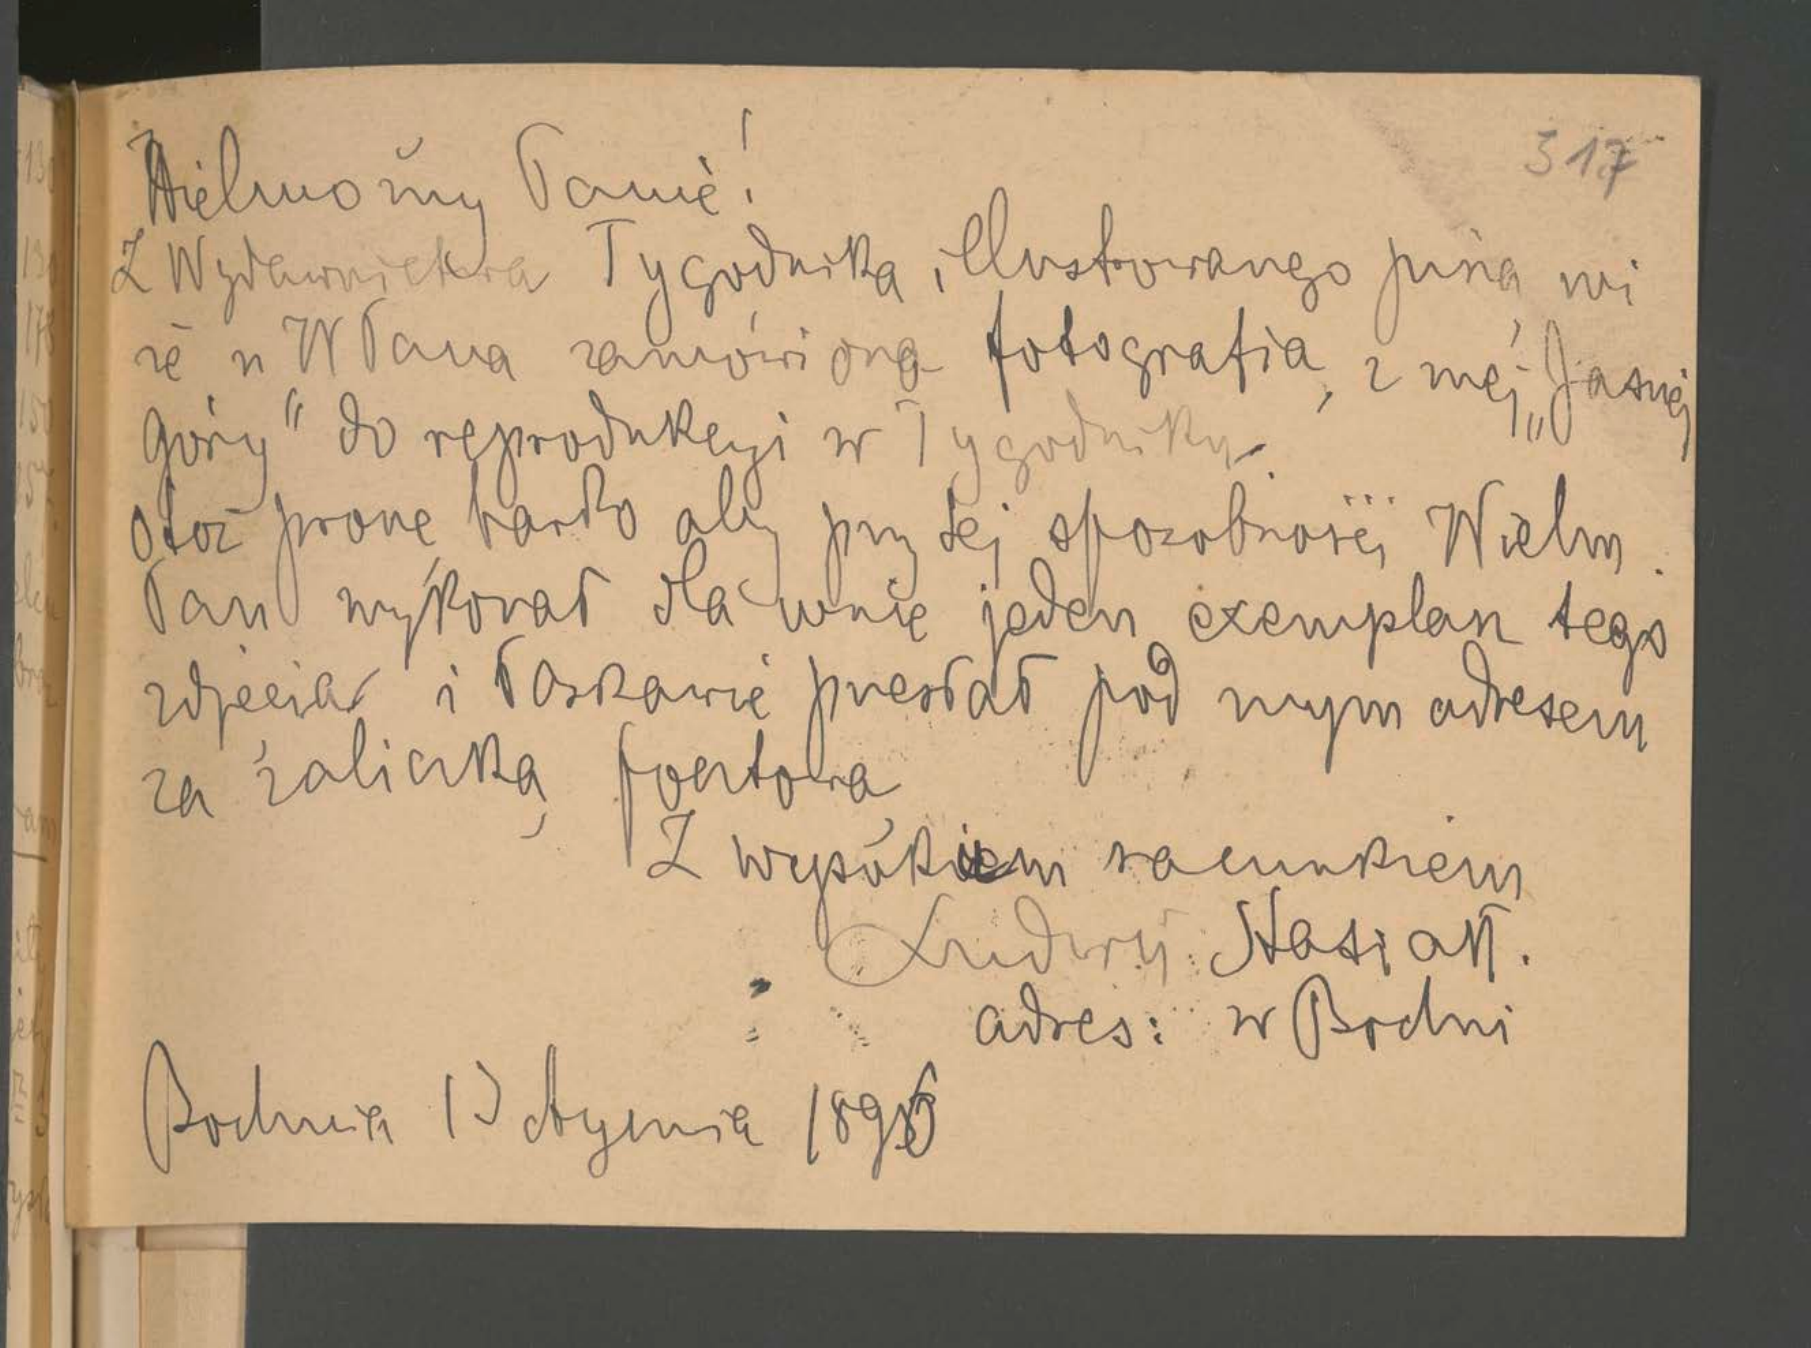 317
Wielmożny Panie!
Z Wydawnictwa Tygodnika illustrowanego piszą mi
że u WPana zamówiono fotografią z mej „Jasnej
góry" do reprodukcyi w Tygodniku.
Otoż proszę bardzo aby przy tej sposobności Wielm.
Pan wykonał dla mnie jeden exemplarz tego
zdjęcia i łaskawie przesłał pod mym adresem
za zaliczką pocztową
Z wysokiem szacunkiem
Ludwik Stasiak.
adres: w Bochni
Bochnia 13 stycznia